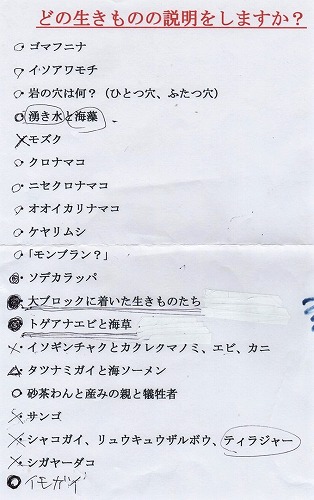 どの生きものの説明をしますか？
・ゴマフニナ
・イソアワモチ
・岩の穴は何？（ひとつ穴、ふたつ穴）
・湧き水と海藻
・モズク
・クロナマコ
・ニセクロナマコ
・オオイカリナマコ
・ケヤリムシ
・「モンブラン？」
・ソデカラッパ
・大ブロックに着いた生きものたち
・トゲアナエビと海草
・イソギンチャクとカクレクマノミ、エビ、カニ
・タツナミガイと海ソーメン
・砂茶わんと産みの親と犠牲者
・サンゴ
・シャコガイ、リュウキュウザルボウ、ティラジャー
・シガヤーダコ
・イモガイ